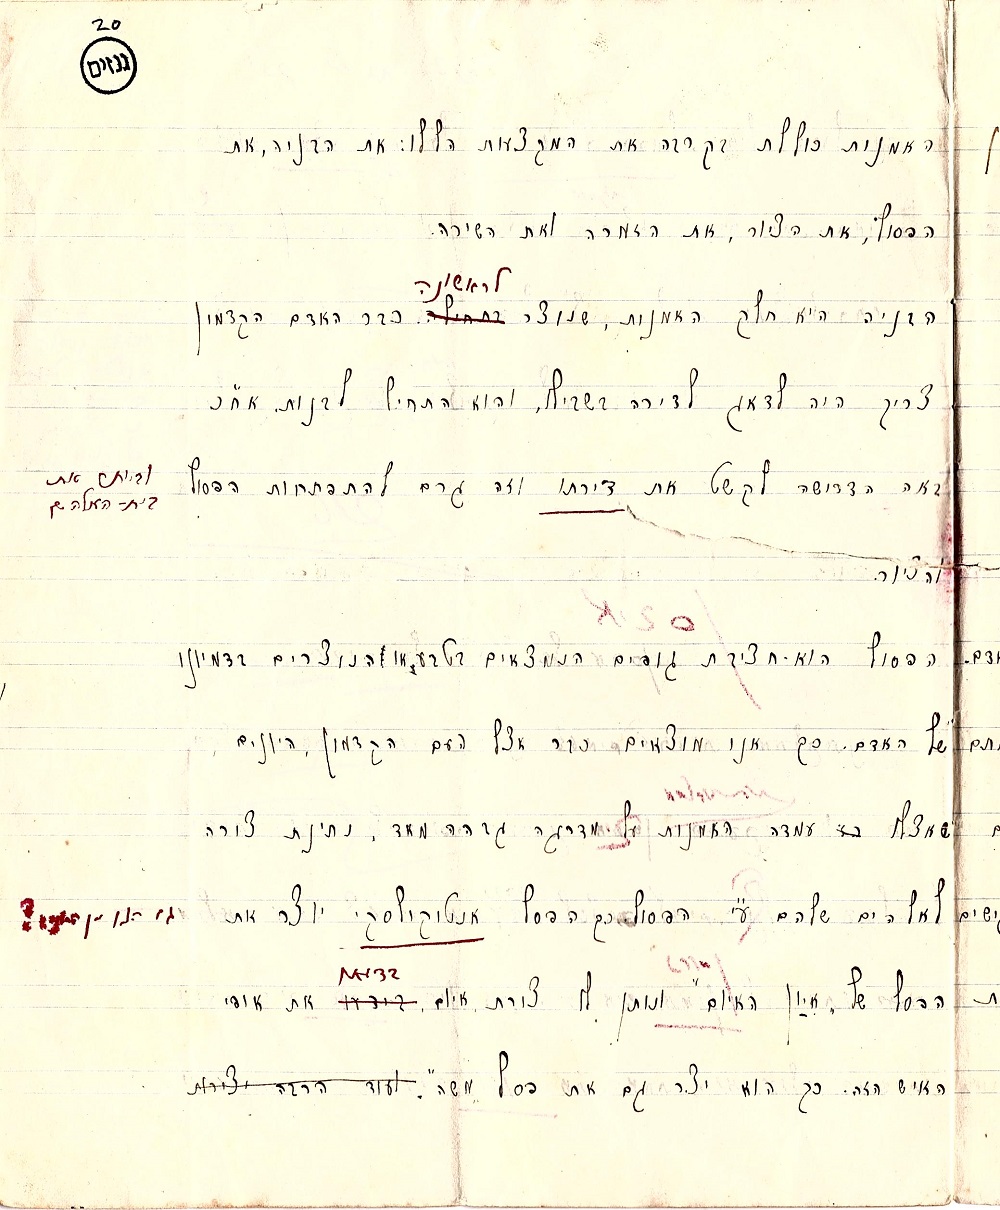 20
גנזים
האמנות כוללת בקרבה את המקצעות הללו: את הבניה, את
הפסול, את הציור, את הזמרה ואת השירה.
לראשונה
הבניה היא חלק האמנות, שנוצר בתחילה. כבר האדם הקדמון
צריך היה לדאוג לדירה בשבילו, והוא התחיל לבנות. אח"כ
באה הדרישה לקשט את דירתו וזה גרם להתפתחות הפסול
את
בית-האלהים
והציור.
הפסול הוא חציבת גופים הנמצאים בטבע, או הנוצרים בדמיונו
של האדם. כך אנו מוצאים כבר אצל העם הקדמון, היונים,
שאצלו עמדה האמנות על מדרגה גבהה מאד, נתינת צורה
לאלהים שלהם ע"י הפסול. כך הפסל אנטוקולסקי יוצר את
הפסל של "איון האיום" ונותן לו צורת איום, את אופי
האיש הזה. כך הוא יצר גם את פסל "משה". ועוד הרבה יצירות